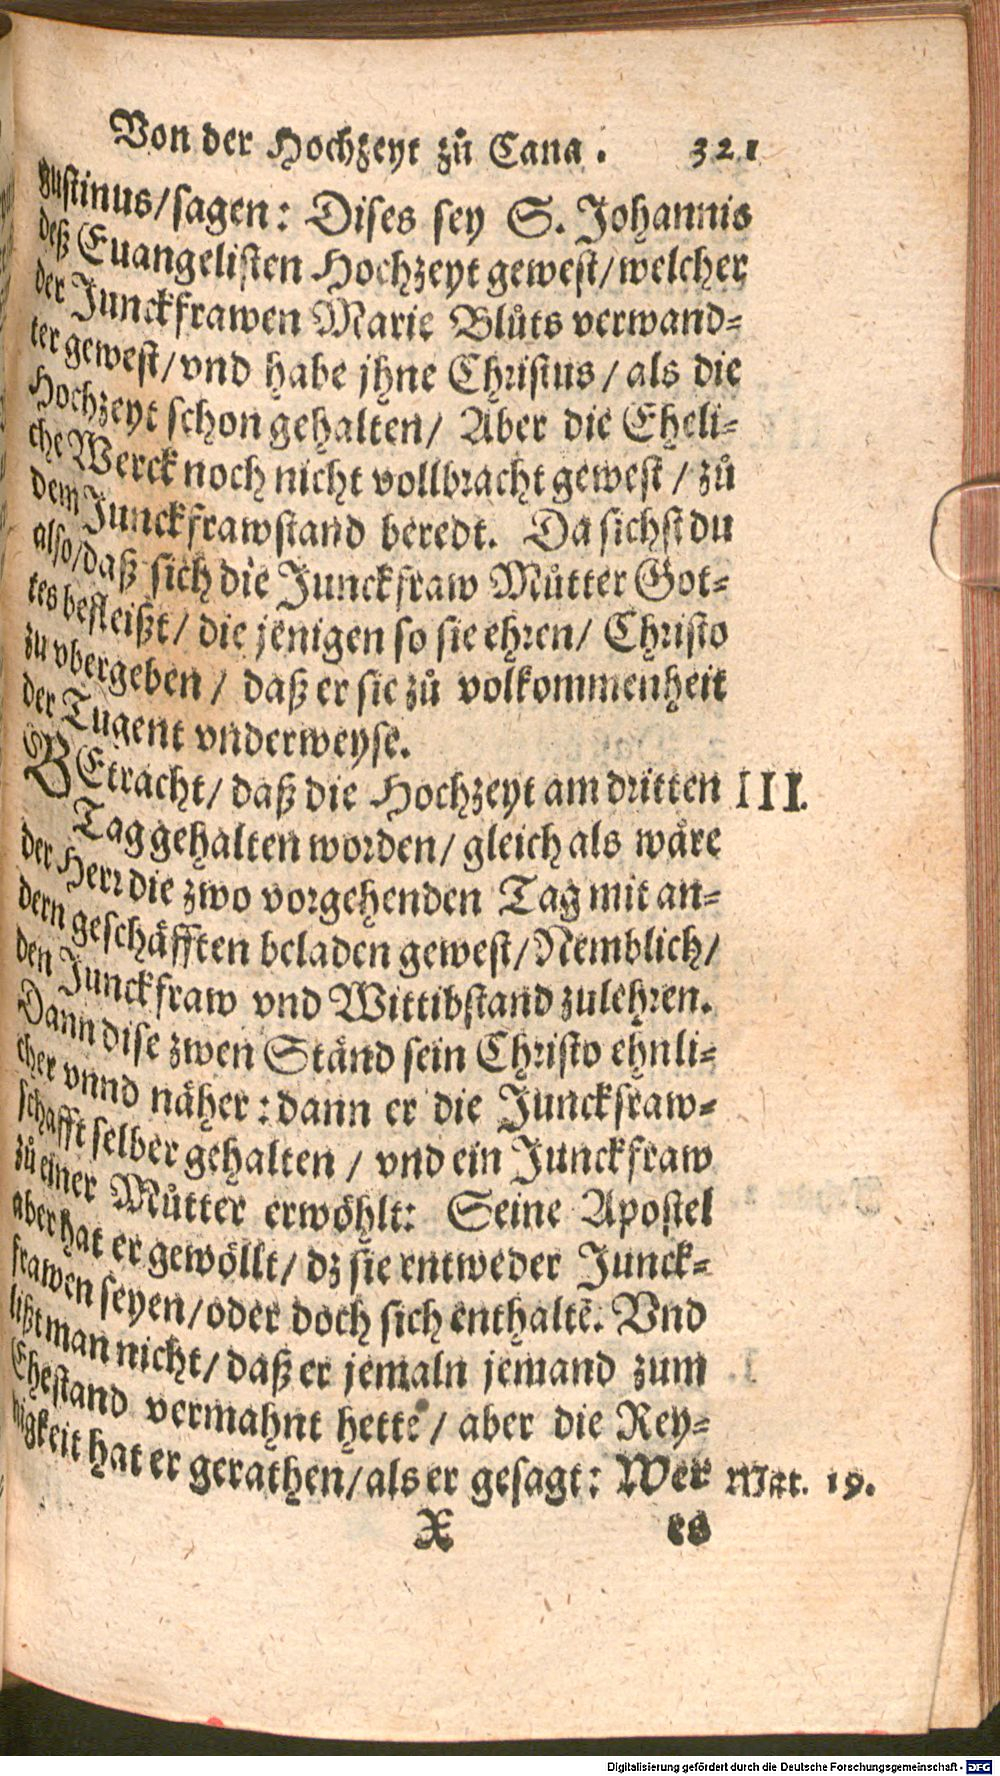 Von der Hochzeyt zů Cana. 321
gustinus/sagen: Dises sey S. Johannis
deß Euangelisten Hochzeyt gewest/welcher
der Junckfrawen Marie Blůts verwand=
ter gewest/vnd habe jhne Christus/als die
Hochzeyt schon gehalten/ Aber die Eheli=
che Werck noch nicht vollbracht gewest/zů
dem Junckfrawstand beredt. Da sichst du
also/daß sich die Junckfraw Můtter Got=
tes befleißt/die jenigen so sie ehren/Christo
zu vbergeben/ daß er sie zů volkommenheit
der Tugent vnderweyse.
BEtracht/daß die Hochzeyt am dritten III.
Tag gehalten worden/gleich als wåre
der Herr die zwo vorgehenden Tag mit an=
dern geschåfften beladen gewest/Nemblich/
den Junckfraw vnd Wittibstand zulehren.
Dann dise zwen Ständ sein Christo ehnli=
cher vnnd näher: dann er die Junckfraw=
schafft selber gehalten/vnd ein Junckfraw
zů einer Můtter erwöhlt: Seine Apostel
aber hat er gewöllt/dz sie entweder Junck=
frawen seyen/oder doch sich enthaltē. Vnd
lißt man nicht/daß er jemaln jemand zum
Ehestand vermahnt hette/ aber die Rey=
nigkeit hat er gerathen/als er gesagt: Wer Matt. 19.
X es
Digitalisierung gefördert durch die Deutsche Forschungsgemeinschaft - DFG